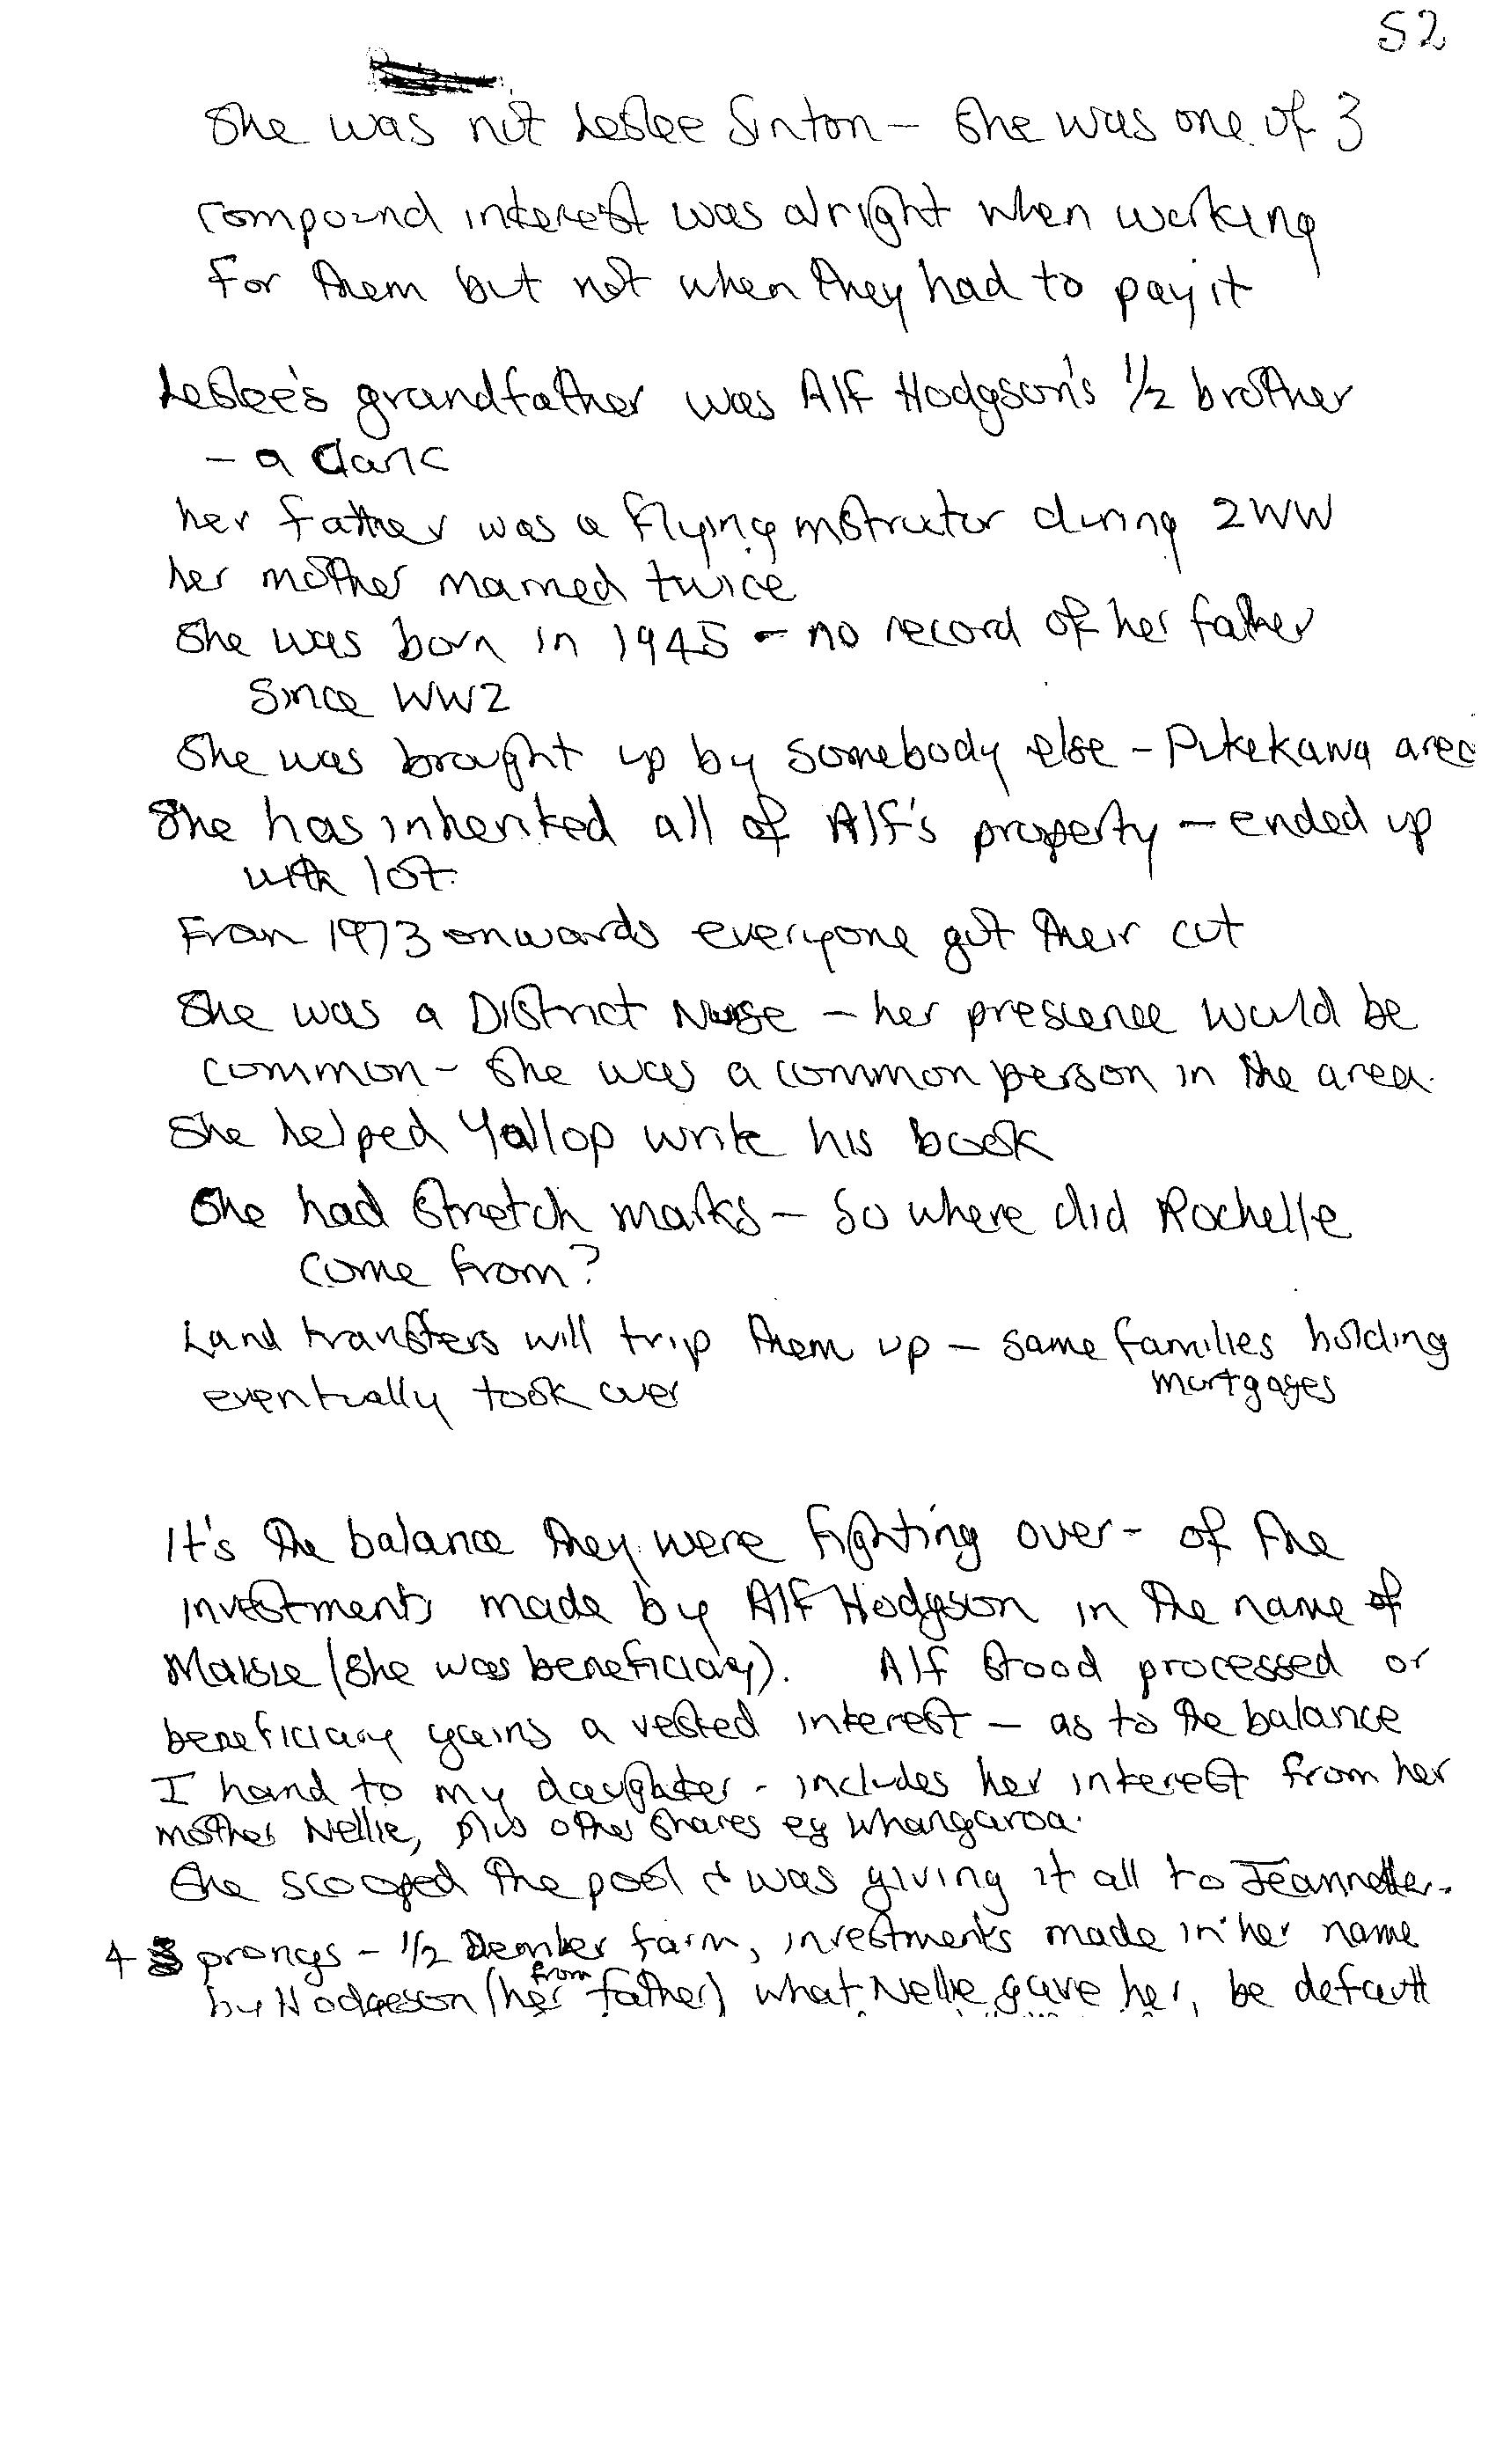 52
She was not Leslee Sinton – She was one of 3
compound interest was alright when working
for them but not when they had to pay it
Leslee's grandfather was Alf Hodgson's 1/2 brother
– a Clark
her father was a flying instructor during 2WW
her mother married twice
She was born in 1945 – no record of her father
Since WW2
She was brought up by somebody else – Pukekawa area
She has inherited all of Alf's property – ended up
with lot.
From 1973 onwards everyone got their cut
She was a District Nurse – her prescence would be
common – She was a common person in the area.
She helped Yallop write his book
She had stretch marks – So where did Rochelle
come from?
Land transfers will trip them up – same families holding
mortgages
eventually took over
It's the balance they were fighting over – of the
investments made by Alf Hodgson in the name of
Maisie (she was beneficiary). Alf stood processed or
beneficiary gains a vested interest – as to the balance
I hand to my daughter – includes her interest from her
mother Nellie, plus other shares eg Whangaroa.
She scooped the pool & was giving it all to Jeannette.
4 prongs – 1/2 Demler farm, investments made in her name
by Hodgeson (her from father) what Nellie gave her, be default